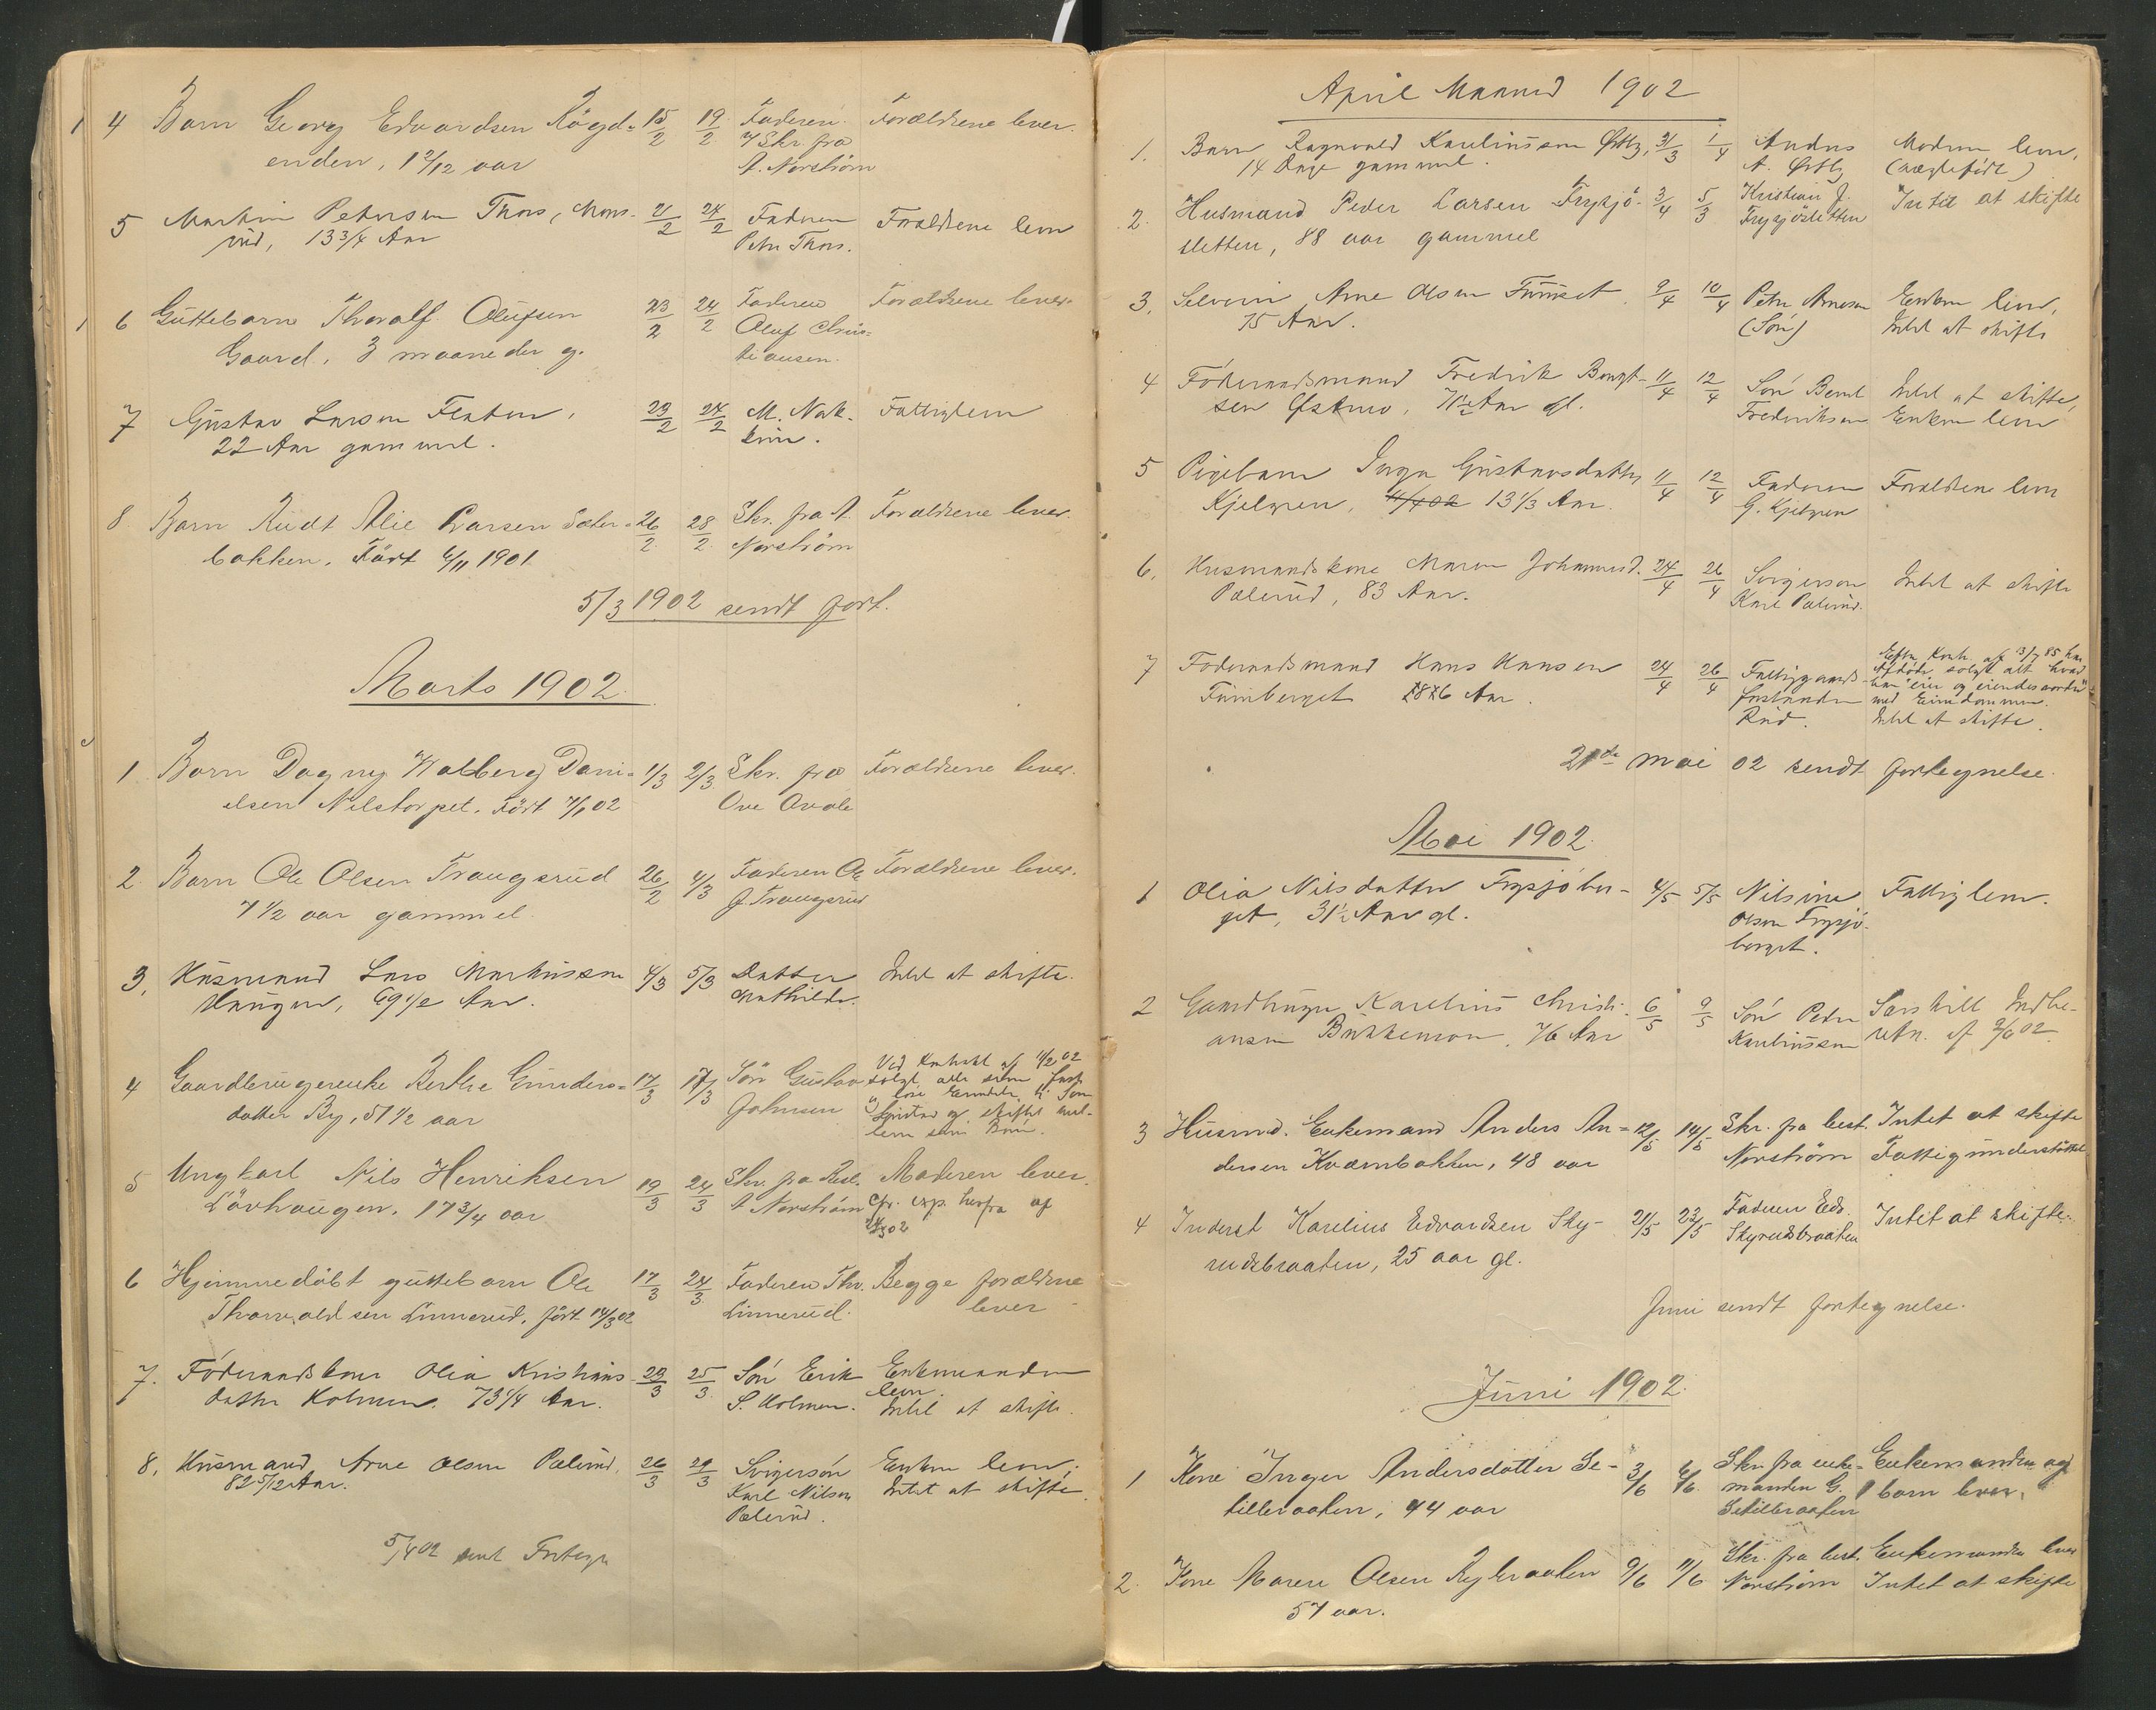 4 Barn Georg Edvardsen Rögd- 15/2 19/2 Faderen. Forældrene lever.
enden, 1 2/12 aar v/ Skr. fra
A. Norström
5 Martin Petersen Thors, Mons- 21/2 24/2 Faderen Forældrene lever
rud, 13 3/4 Aar Petter Thors.
6 Guttebarn Thoralf Olufsen 23/2 24/2 Faderen Forældrene lever.
Gaard, 3 maaneder g. Oluf Chris-
tiansen.
7 Gustav Larsen Flaten, 23/2 24/2 M. Nak- Fattiglem
22 Aar gammel. kim.
8 Barn Rudt Alie Larsen Sæter- 26/2 28/2 Skr. fra A. Forældrene lever.
bakken. Född 6/11 1901 Norström
5/3 1902 sendt fort.
Marts 1902.
1 Barn Dagny Walberg Dani- 1/3 2/3 Skr. fra Forældrene lever.
elsen Nilstorpet. Född 7/1 02 Ove Ovale
2. Barn Ole Olsen Traugsrud 26/2 4/3 Faderen Ole Forældrene lever.
7 1/2 aar gammel J. Traugsrud
3, Husmand Lars Markussen 4/3 5/3 Datter Intet at skifte.
Haugen, 69 1/2 Aar. Mathilde.
4 Gaardbrugerenke Berthe Gunders- 17/3 17/3 Sön Gustav Ved Kontrakt af 11/2 02
datter By, 51 1/2 aar Johnsen solgt alle sine faste
og löse Eiendele til Sön
Gustav og skiftet mel-
lem sine Börn.
5 Ungkarl Nils Henriksen 19/3 24/3 Skr. fra Best. Moderen lever.
Lövhaugen. 17 3/4 aar A Norström Cfr. exp. herfra af
24/3 02
6 Hjemmedöbt guttebarn Ole 17/3 24/3 Faderen Thv. Begge forældrene
Thorvaldsen Linnerud, född 14/3 02 Linnerud. lever
7. Föderaadskone Olia Kristians- 23/3 25/3 Sön Erik Enkemanden
datter Holmen. 73 1/4 Aar. S. Holmen. lever.
Intet at skifte.
8, Husmand Arne Olsen Pælerud, 26/3 29/3 Svigersön Enken lever;
82 5/12 Aar. Karl Nilsen Intet at skifte.
Pælerud.
5/4 02 sendt Fortegn
April Maaned 1902
1. Barn Ragnvald Karlinussen Østby, 31/3 1/4 Andas Modren lever,
14 Dage gammel. A. Østby (uægtefödt)
2. Husmand Peder Larsen Frysjö- 3/4 5/3 Kristian J. Intet at skifte
sletten, 88 aar gammel Frysjösletten
3, Selveier Arne Olsen Fürüset 9/4 10/4 Petter Arnesen Enken lever,
75 Aar. (Sön) Intet at skifte
4 Föderaadsmand Fredrik Bengt- 11/4 12/4 Sön Bernt Intet at skifte,
sen Østmo, 71 1/2 Aar gl. Frederiksen Enken lever
5 Pigebarn Inga Gustavsdatter 11/4 12/4 Faderen Forældrene lever
Kjelgren, 13 1/3 Aar. G. Kjelgren
6, Husmandskone Maren Johannesd. 24/4 26/4 Svigersön Intet at skifte
Pælerud, 83 Aar. Karl Pælerud.
7 Föderaadsmand Hans Hansen 24/4 26/4 Fattiggaards- Efter Kontr. af 13/7 85 har
Furuberget 76 Aar. forstander Afdöde solgt alt hvad
Rud. han "eier og eiendes vorder"
med Eiendommen.
Intet at skifte.
21de mai 02 sendt fortegnelse.
Mai 1902.
1 Olia Nilsdatter Frysjöber- 4/5 5/5 Nilsine Fattiglem.
get, 31 1/2 Aar gl. Olsen Frysjö-
berget.
2 Gaardbruger Karelius Christi- 6/5 9/5 Sön Peder Særskilt Indbe-
ansen Bukkemoen, 76 Aar Karelinussen retn. af 9/6 02
3 Husmd. Enkemand Anders An- 12/5 14/5 Skr. fra best. Intet at skifte
dersen Kværnbakken, 48 aar Norström Fattigunderstöttet
4 Inderst Karelius Edvardsen Sky- 21/5 23/5 Faderen Edv. Intet at skifte.
rudsbraaten, 25 aar gl. Skyrudsbraaten
Juni sendt fortegnelse.
Juni 1902.
1 Kone Inger Andersdatter Se- 3/6 6/6. Skr. fra enke- Enkemanden og
tilbraaten, 44 aar manden G. 1 barn lever.
Setilbraaten
2. Kone Maren Olsen Rybraaten 9/6 11/6 Skr. fra best. Enkemanden lever
57 aar. Norström Intet at skifte